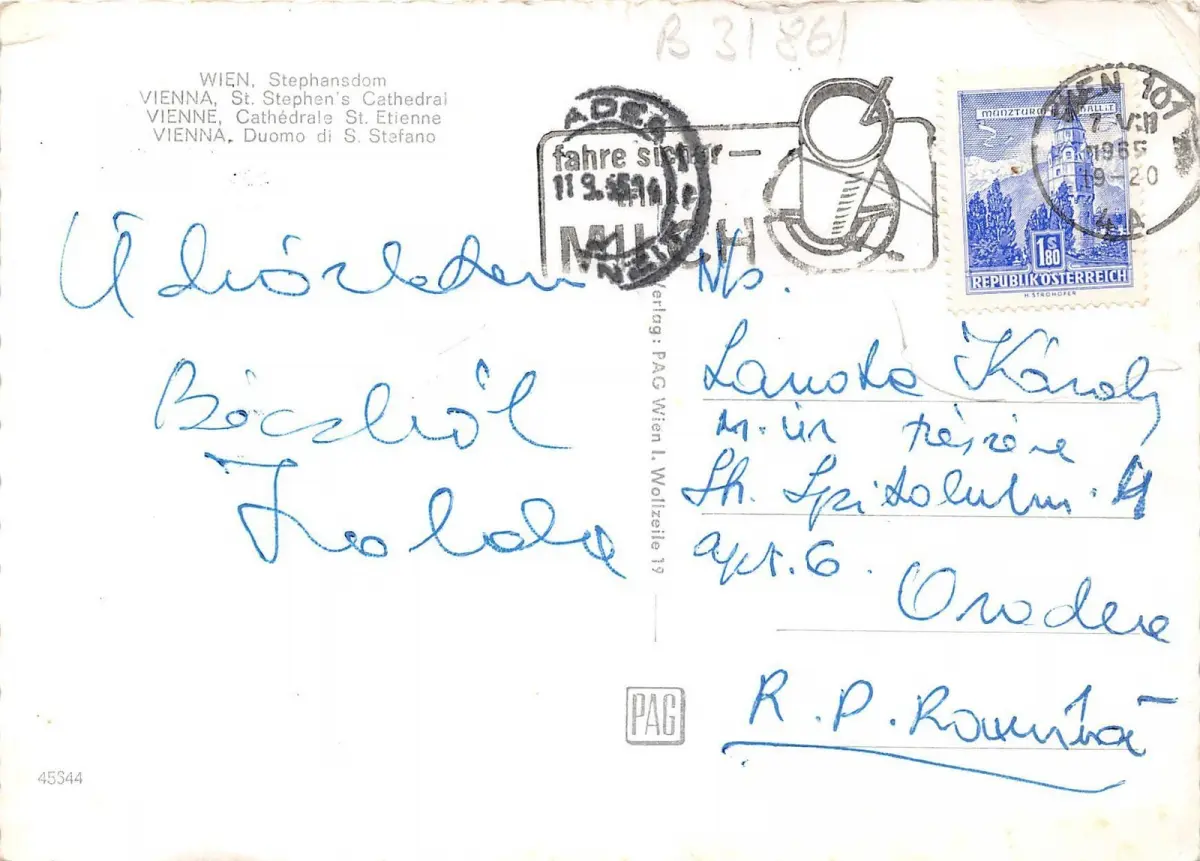 B 31 861
WIEN, Stephansdom
VIENNA, St. Stephen's Cathedral
VIENNE, Cathédrale St. Etienne
VIENNA, Duomo di S. Stefano
fahre sicher —
MILCH
WIEN 101
1965
19-20
4A
MÜNZTURM HALL i.T.
1S80
REPUBLIK ÖSTERREICH
H. STROHOFER
Üdvözletem
Bécsből
Verlag: PAG Wien I. Wollzeile 19
Károly
m. úr részére
apt. 6.
Oradea
R. P. Română
PAG
45544